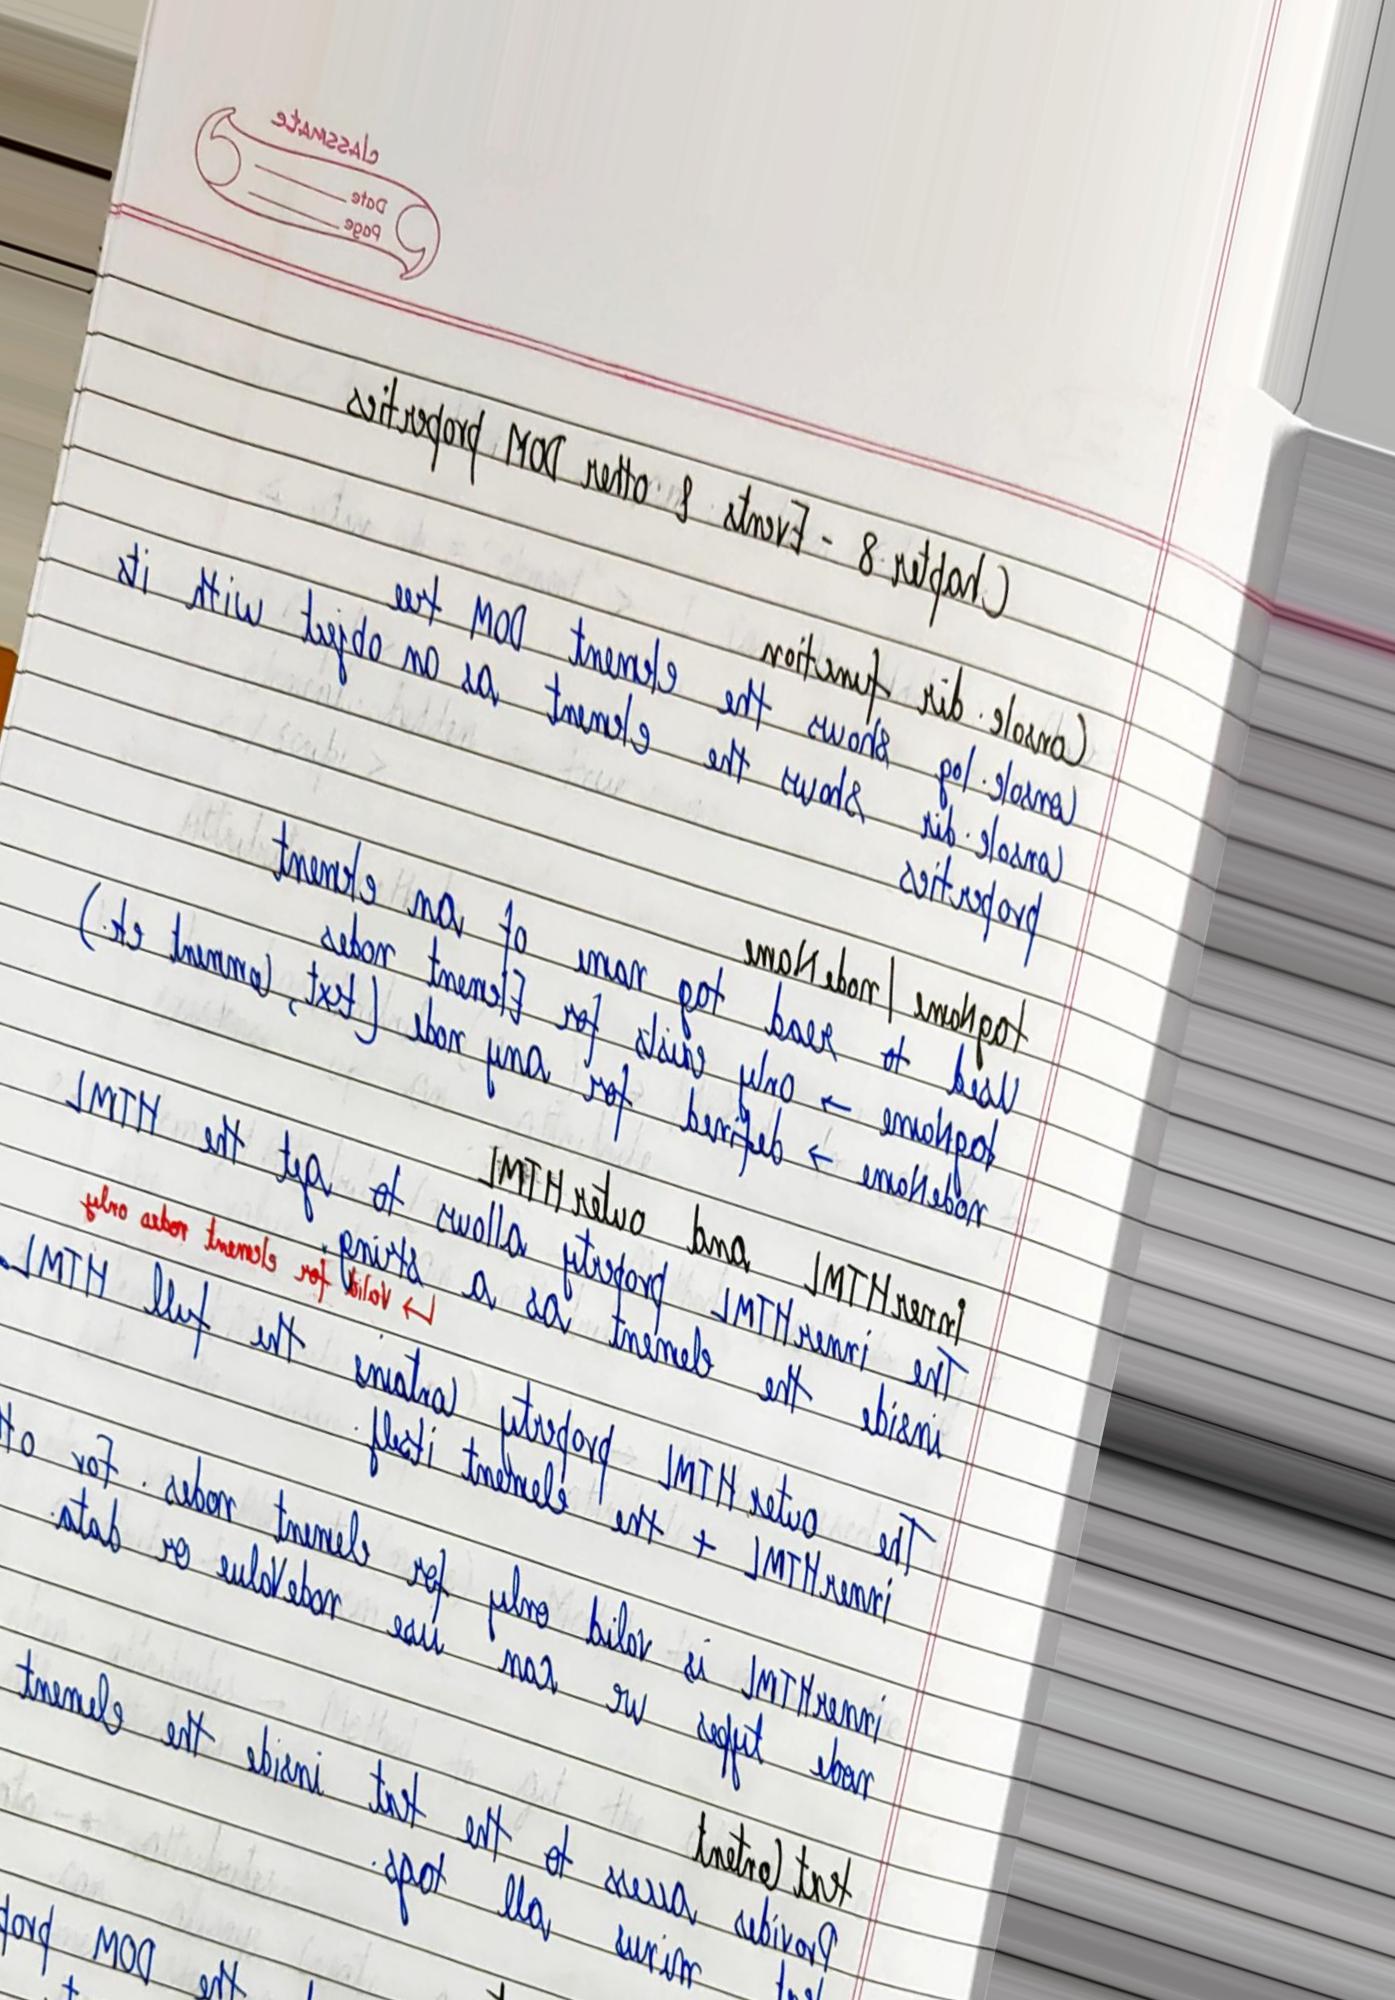 classmate
Date
Page
Chapter 8 - Events & other DOM properties
Console.dir function
Console.log shows the element DOM tree
Console.dir shows the element as an object with its
properties
tagName / nodeName
Used to read tag name of an element
tagName → only exists for Element nodes
nodeName → defined for any node (text, comment etc.)
innerHTML and outerHTML
The innerHTML property allows to get the HTML
inside the element as a string.
↳ Valid for element nodes only
The outerHTML property contains the full HTML
innerHTML + the element itself.
innerHTML is valid only for element nodes. For oth
node types we can use nodeValue or data.
text Content
Provides access to the text inside the element
minus all tags.
the DOM prop